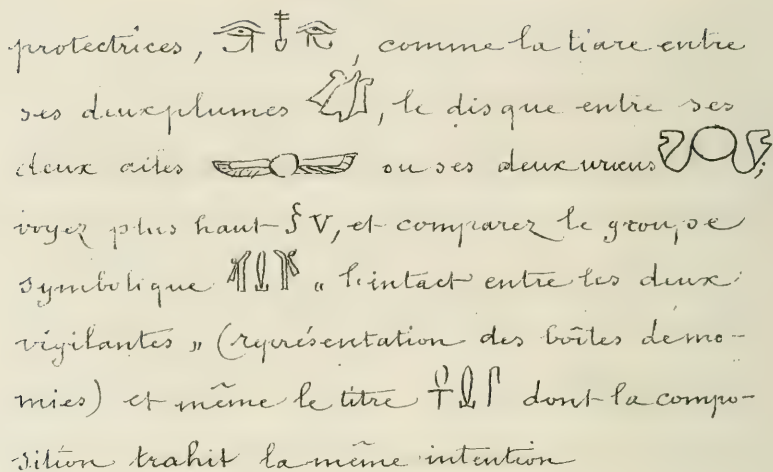 protectrices, 𓂀𓄤𓂀, comme la tiare entre
ses deux plumes, le disque entre ses
deux ailes ou ses deux uræus;
voyez plus haut § V, et comparez le groupe
symbolique « l'intact entre les deux
vigilantes » (représentation des boîtes de mo-
mies) et même le titre dont la compo-
sition trahit la même intention